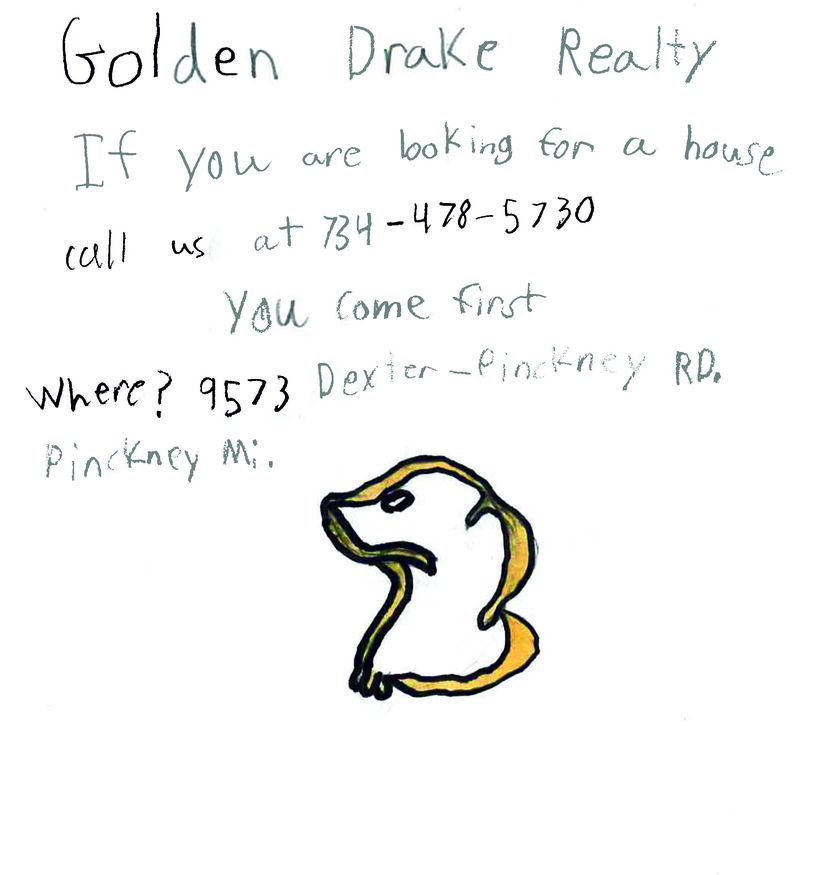 Golden Drake Realty
If you are looking for a house
call us at 734-478-5730
you come first
Where? 9573 Dexter-Pinckney RD.
Pinckney Mi.